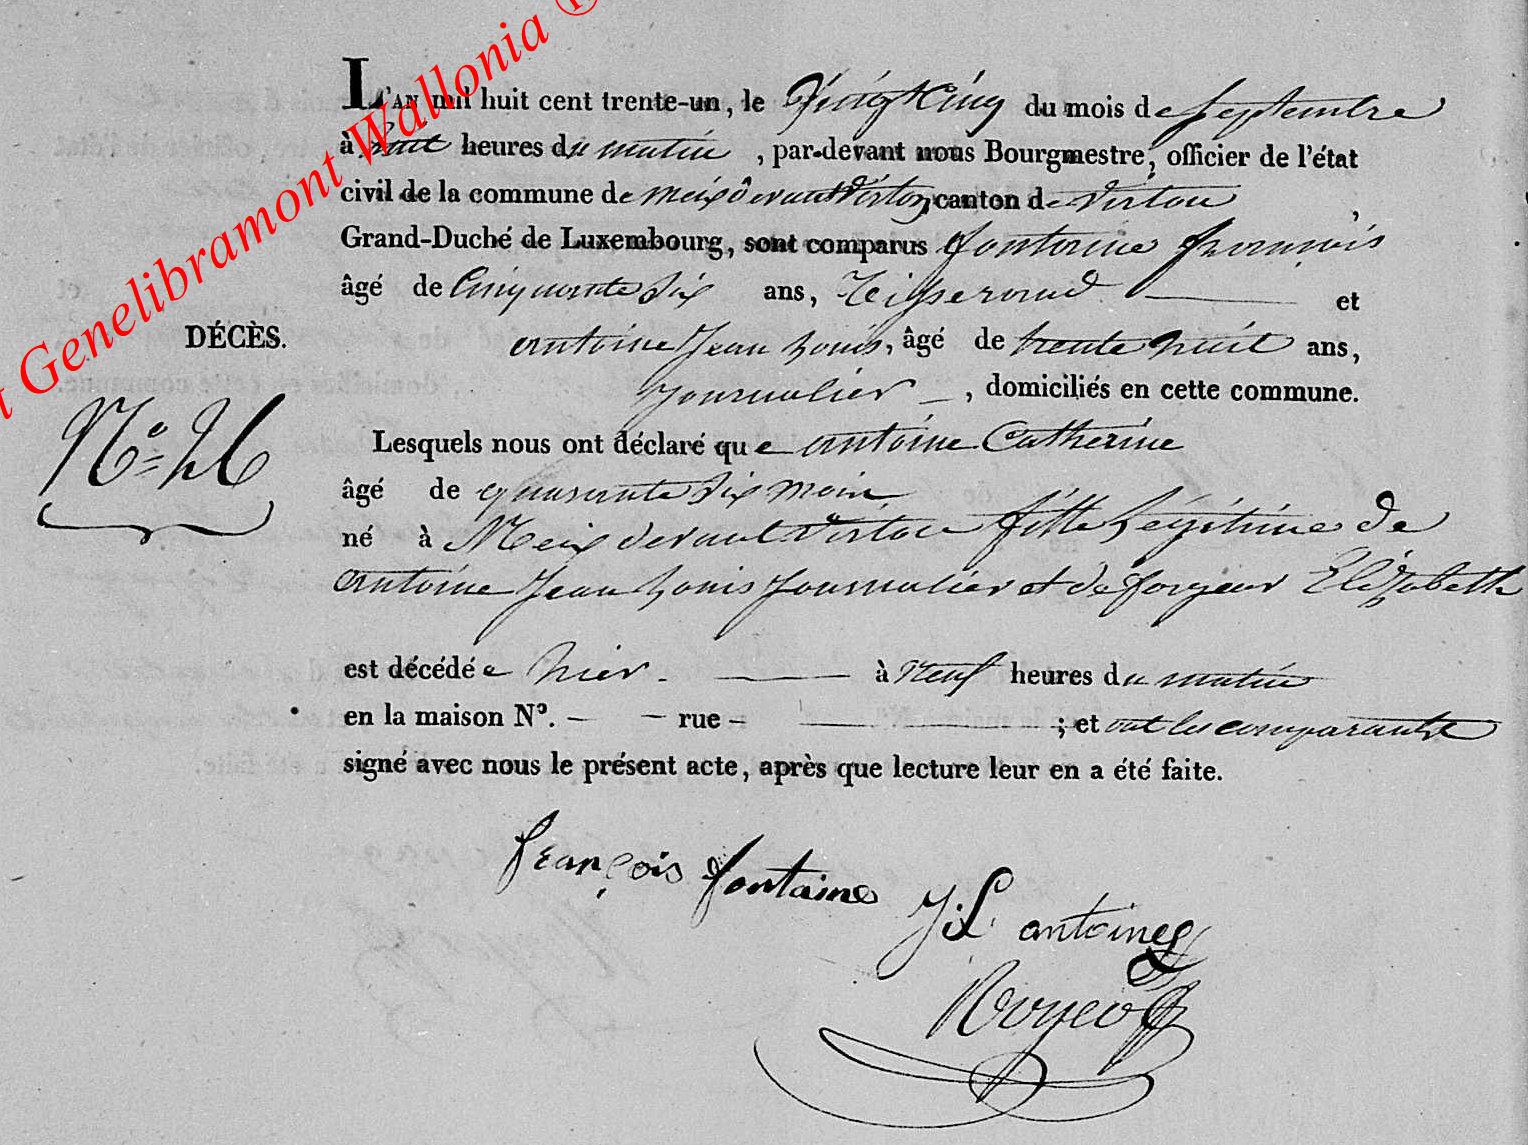 Genelibramont Wallonia ®
L'AN mil huit cent trente-un, le Vingt Cinq du mois de Septembre
à huit heures du matin, par-devant nous Bourgmestre, officier de l'état
civil de la commune de Meix devant Virton, canton de Virton,
Grand-Duché de Luxembourg, sont comparus fontaine françois
âgé de Cinquante Six ans, Tisserand — et
DÉCÈS.
antoine Jean Louis, âgé de trente huit ans,
Journalier —, domiciliés en cette commune.
N°= 26
Lesquels nous ont déclaré que antoine Catherine
âgé de quarante Six mois
né à Meix devant Virton fille Légitime de
antoine Jean Louis Journalier et de forgeur Elizabeth
est décédée hier — à Neuf heures du matin
en la maison N°. — — rue — — ; et ont les comparants
signé avec nous le présent acte, après que lecture leur en a été faite.
françois fontaine
J: L antoine